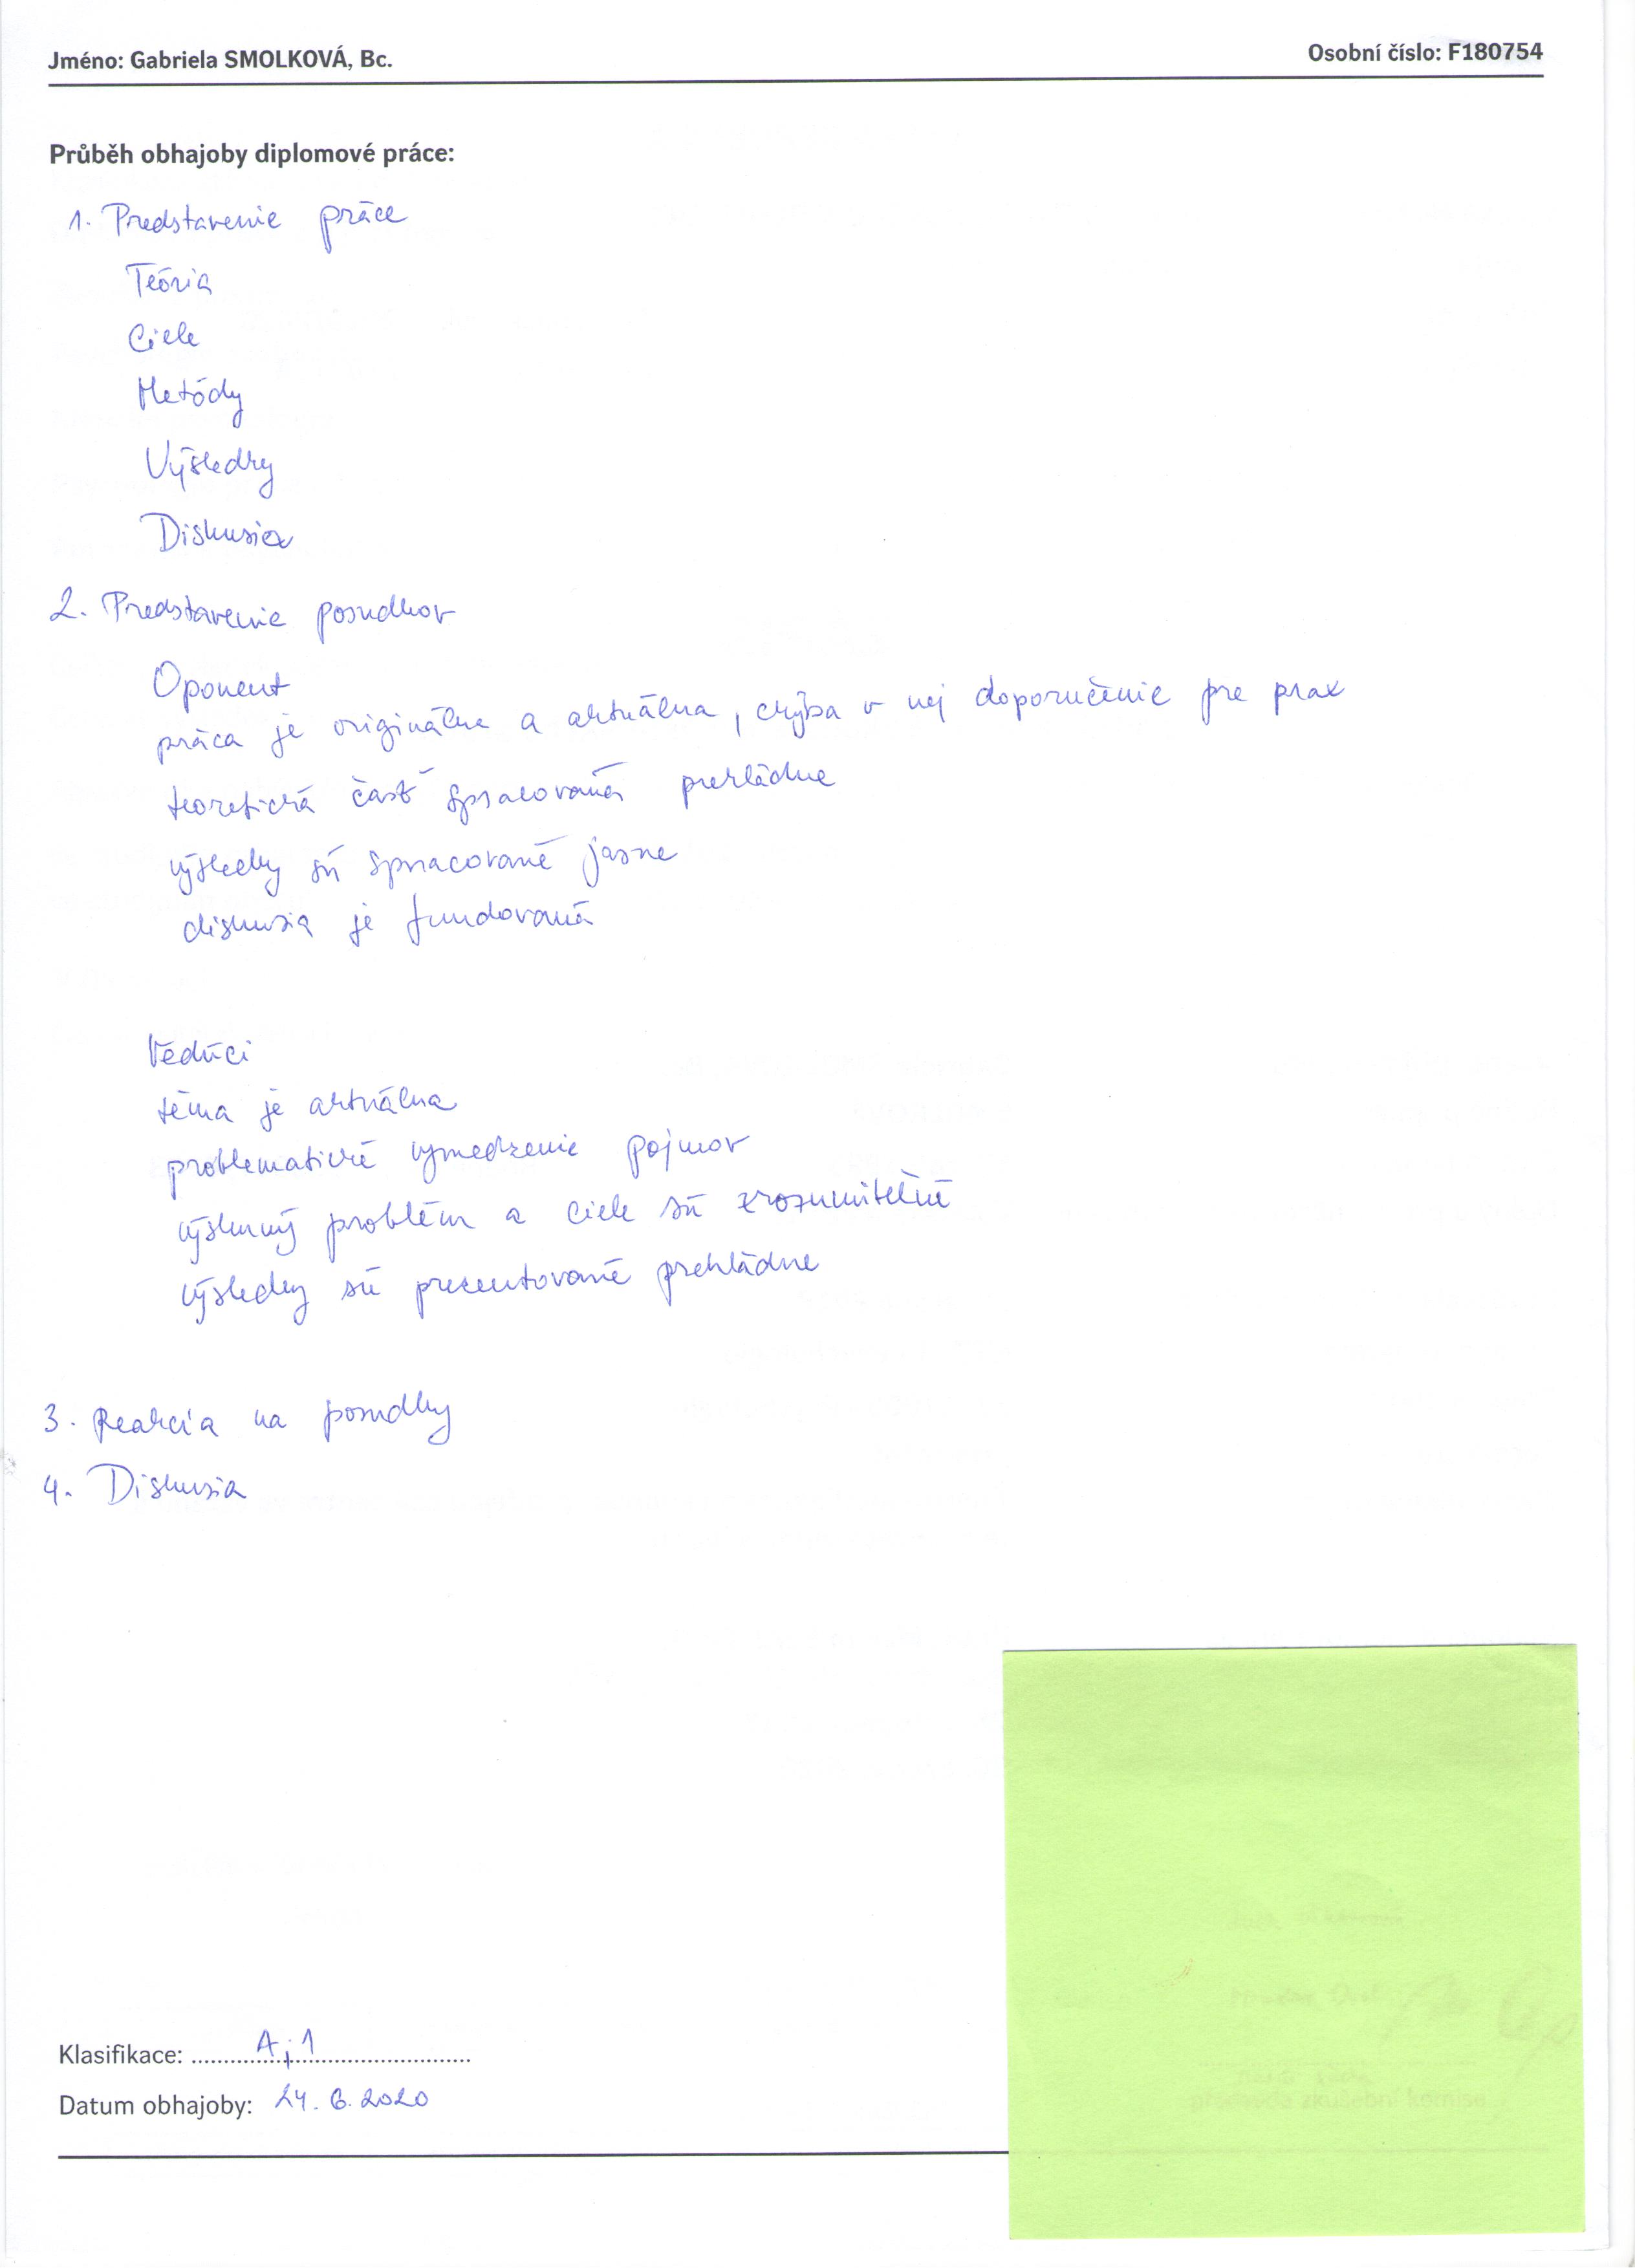 Jméno: Gabriela SMOLKOVÁ, Bc.
Osobní číslo: F180754
Průběh obhajoby diplomové práce:
1. Predstavenie práce
Teória
Ciele
Metódy
Výsledky
Diskusia
2. Predstavenie posudkov
Oponent
práca je originálna a aktuálna, chýba v nej doporučenie pre prax
teoretická časť spracovaná prehládne
výsledky sú spracované jasne
diskusia je fundovaná
Vedúci
téma je aktuálna
problematické vymedzenie pojmov
výskumný problém a ciele sú zrozumiteľné
výsledky sú prezentované prehládne
3. Reakcia na posudky
4. Diskusia
Klasifikace: A; 1
Datum obhajoby: 24. 6. 2020
předseda zkušební komise